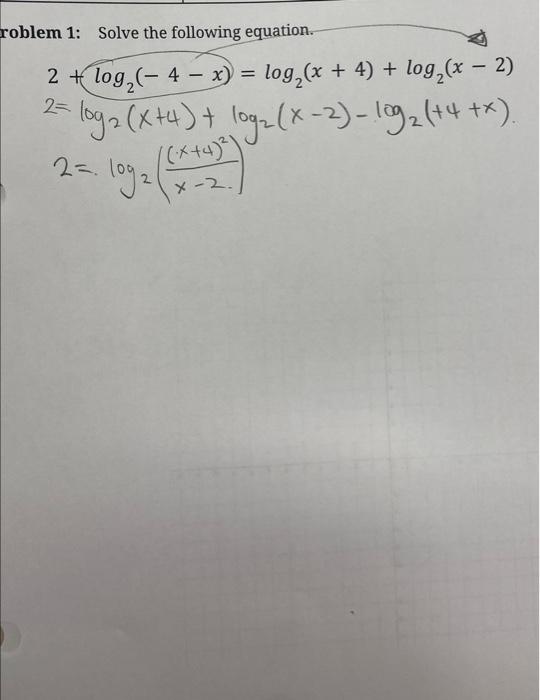 roblem 1: Solve the following equation.
2 + log₂(− 4 − x) = log₂(x + 4) + log₂(x − 2)
2= log₂(x+4) + log₂(x−2) − log₂(+4 +x).
2=. log₂((x+4)²/x−2.)